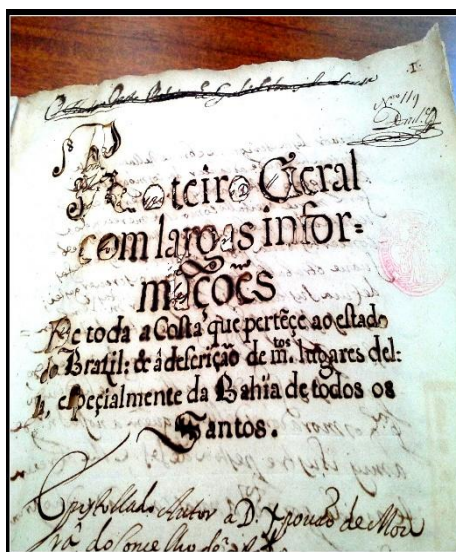 .1.
N.º 119
Roteiro Geral
com largas infor=
mações
De toda a Costa que pertẽçe ao estado
do Brazil: & a descrição de m.tos lugares del:
la, espeçialmente da Bahia de todos os
Santos.
Epistolla do Autor a D. Xpouão de Mou
ra do Conçelho de